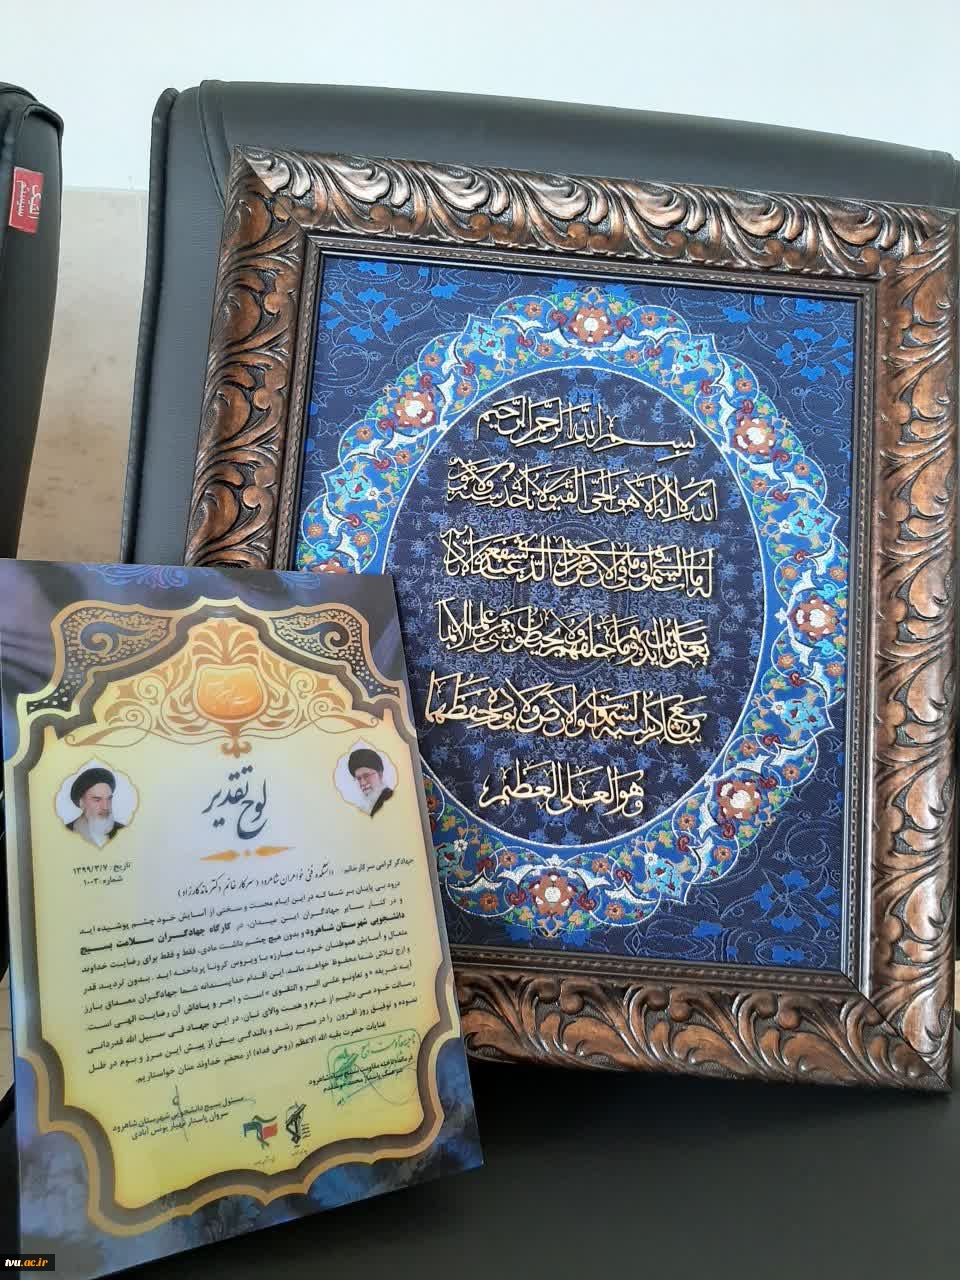 الکتریک
سیستم
بسم الله الرحمن الرحیم
الله لا اله الا هو الحی القیوم لا تاخذه سنة ولا نوم
له ما فی السموات وما فی الارض من ذا الذی یشفع عنده الا باذنه
یعلم ما بین ایدیهم وما خلفهم ولا یحیطون بشیء من علمه الا بما
شاء وسع کرسیه السموات والارض ولا یؤده حفظهما
وهو العلی العظیم
لوح تقدیر
تاریخ: ۱۳۹۹/۳/۷
شماره: ۱۰۰۳
جهادگر گرامی سرکار خانم: دانشکده فنی خواهران شاهرود (سرکار خانم دکتر ماندگارزاد)
درود بی پایان بر شما که در این ایام محنت و سختی از آسایش خود چشم پوشیده اید
و در کنار سایر جهادگران این میدان، در کارگاه جهادگران سلامت بسیج
دانشجویی شهرستان شاهرود و بدون هیچ چشم داشت مادی، فقط و فقط برای رضایت خداوند
متعال و آسایش هموطنان خود به مبارزه با ویروس کرونا پرداخته اید . بدون تردید قدر
و ارج تلاش شما محفوظ خواهد ماند. این اقدام خداپسندانه شما جهادگران مصداق بارز
آیه شریفه « و تعاونو علی البر و التقوی » است و اجر و پاداش آن رضایت الهی است.
رسالت خود می دانیم از عزم و همت والای تان، در این جهاد فی سبیل الله قدردانی
نموده و توفیق روز افزون را در مسیر رشد و بالندگی بیش از پیش این مرز و بوم در ظل
عنایات حضرت بقیه الله الاعظم (روحی فداه) از محضر خداوند منان خواستاریم.
فرمانده ناحیه مقاومت بسیج سپاه شاهرود
مسئول بسیج دانشجویی شهرستان شاهرود
سروان پاسدار مهیار یونس آبادی
tvu.ac.ir